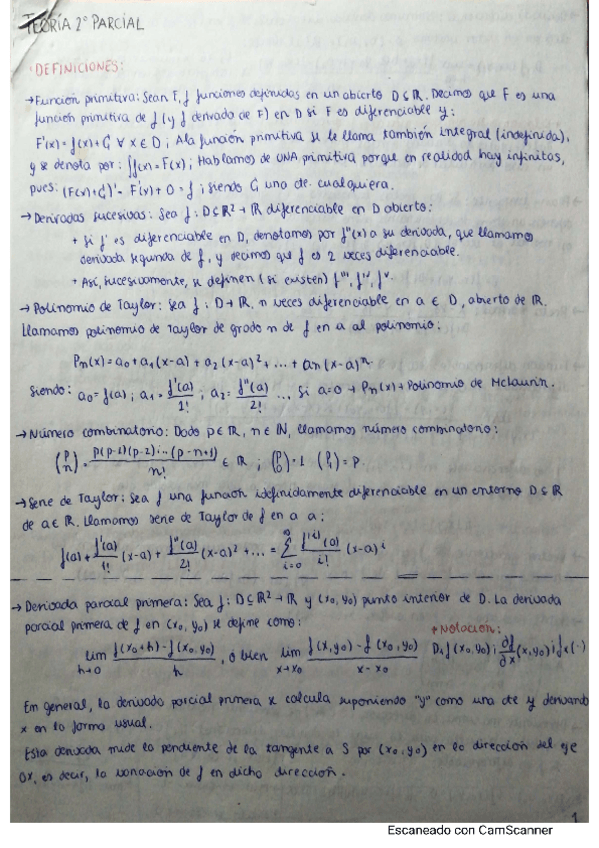 TEORÍA 2º PARCIAL
· DEFINICIONES:
→ Función primitiva: Sean F, f funciones definidas en un abierto D ⊆ ℝ. Decimos que F es una
función primitiva de f (y f derivada de F) en D si F es diferenciable y:
F'(x) = f(x) + C, ∀ x ∈ D ; A la función primitiva se le llama también integral (indefinida),
y se denota por: ∫f(x) = F(x) ; Hablamos de UNA primitiva porque en realidad hay infinitas,
pues: (F(x)+C)' = F'(x) + 0 = f ; siendo C, una cte. cualquiera.
→ Derivadas sucesivas: Sea f : D ⊆ ℝ² → ℝ diferenciable en D abierto:
+ Si f' es diferenciable en D, denotamos por f''(x) a su derivada, que llamamos
derivada segunda de f, y decimos que f es 2 veces diferenciable.
+ Así, sucesivamente, se definen (si existen) f''', f^IV, f^V.
→ Polinomio de Taylor: Sea f : D → ℝ, n veces diferenciable en a ∈ D, abierto de ℝ.
Llamamos polinomio de Taylor de grado n de f en a al polinomio:
Pn(x) = a0 + a1(x-a) + a2(x-a)² + ... + an(x-a)^n.
siendo: a0 = f(a) ; a1 = f'(a)/1! ; a2 = f''(a)/2! ... Si a=0 → Pn(x) → Polinomio de Mclaurin.
→ Número combinatorio: Dado p ∈ ℝ, n ∈ ℕ, llamamos número combinatorio:
(p n) = p(p-1)(p-2)...(p-n+1)/n! ∈ ℝ ; (p 0) = 1 (p 1) = p.
→ Serie de Taylor: Sea f una función idefinidamente diferenciable en un entorno D ⊆ ℝ
de a ∈ ℝ. Llamamos serie de Taylor de f en a a:
f(a) + f'(a)/1! (x-a) + f''(a)/2! (x-a)² + ... = ∑ i=0 ∞ f^(i)(a)/i! (x-a)^i
→ Derivada parcial primera: Sea f : D ⊆ ℝ² → ℝ y (x0, y0) punto interior de D. La derivada
parcial primera de f en (x0, y0) se define como:
* Notación:
lim h→0 f(x0+h) - f(x0, y0)/h , ó bien lim x→x0 f(x, y0) - f(x0, y0)/x - x0 D1 f(x0, y0) ; ∂f/∂x (x, y0) ; fx(·)
Em general, la derivada parcial primera se calcula suponiendo "y" como una cte y derivando
x en la forma usual.
Esta derivada mide la pendiente de la tangente a S por (x0, y0) en la dirección del eje
OX, es decir, la variación de f en dicha dirección.
1
Escaneado con CamScanner